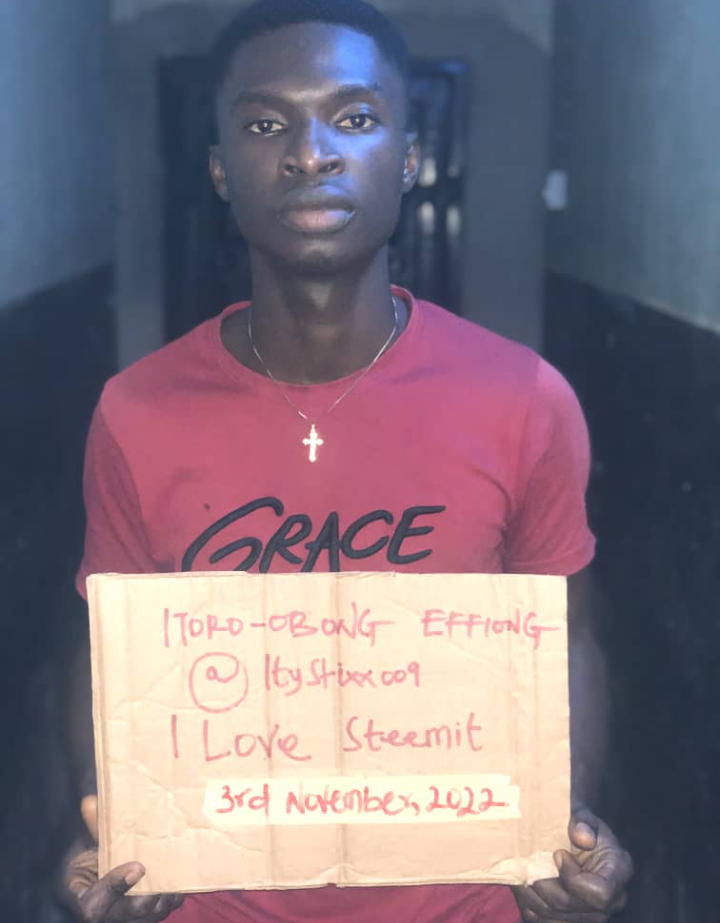 GRACE
ITORO-OBONG EFFIONG
@ Itystixx009
I Love Steemit
3rd November, 2022